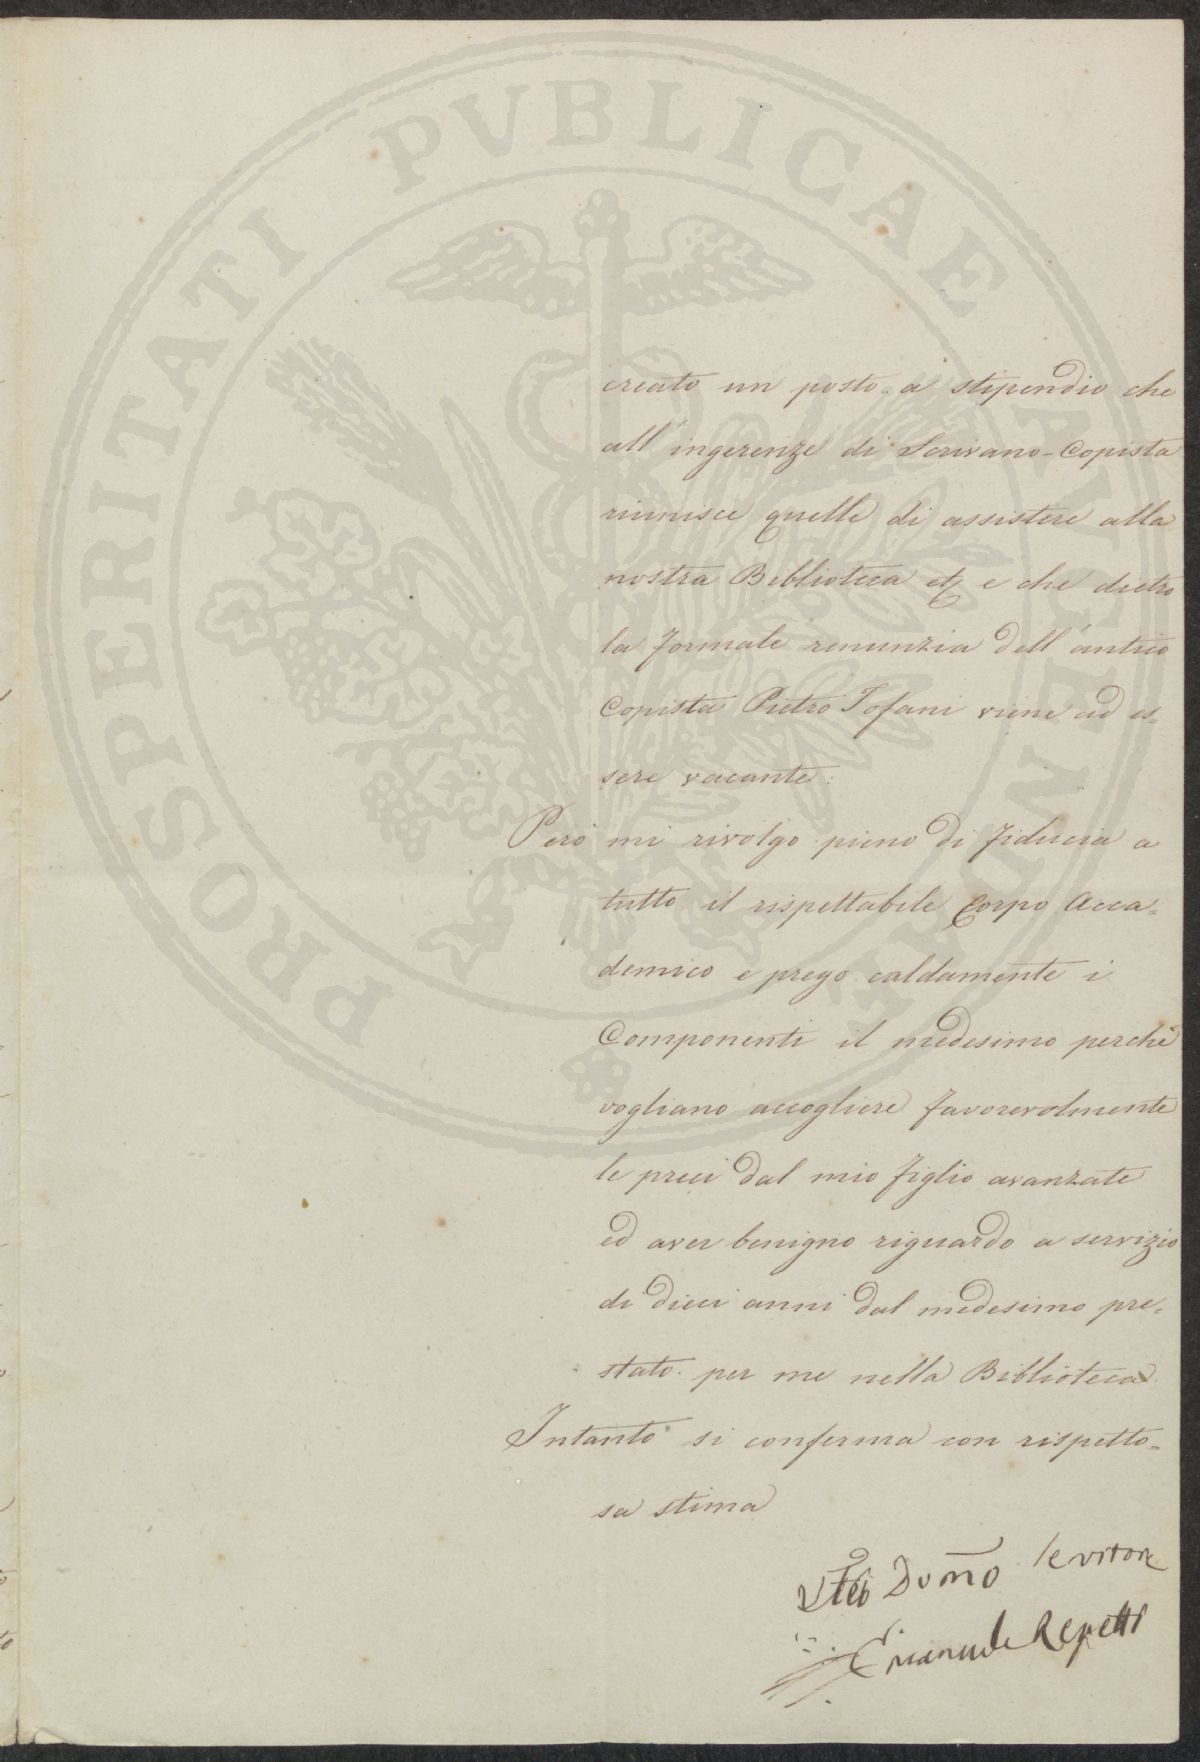 PROSPERITATI PVBLICAE AVGENDAE
creato un posto a stipendio che
all'ingerenze di Scrivano-Copista
riunisce quelle di assistere alla
nostra Biblioteca e che dietro
la formale renunzia dell'antico
Copista Pietro Tofani viene ad es=
sere vacante.
Però mi rivolgo pieno di fiducia a
tutto il rispettabile Corpo Acca=
demico e prego caldamente i
Componenti il medesimo perchè
vogliano accogliere favorevolmente
le preci dal mio figlio avanzate
ed aver benigno riguardo a servizio
di dieci anni dal medesimo pre=
stato per me nella Biblioteca
Intanto si conferma con rispetto=
sa stima
Emanuele Repetti